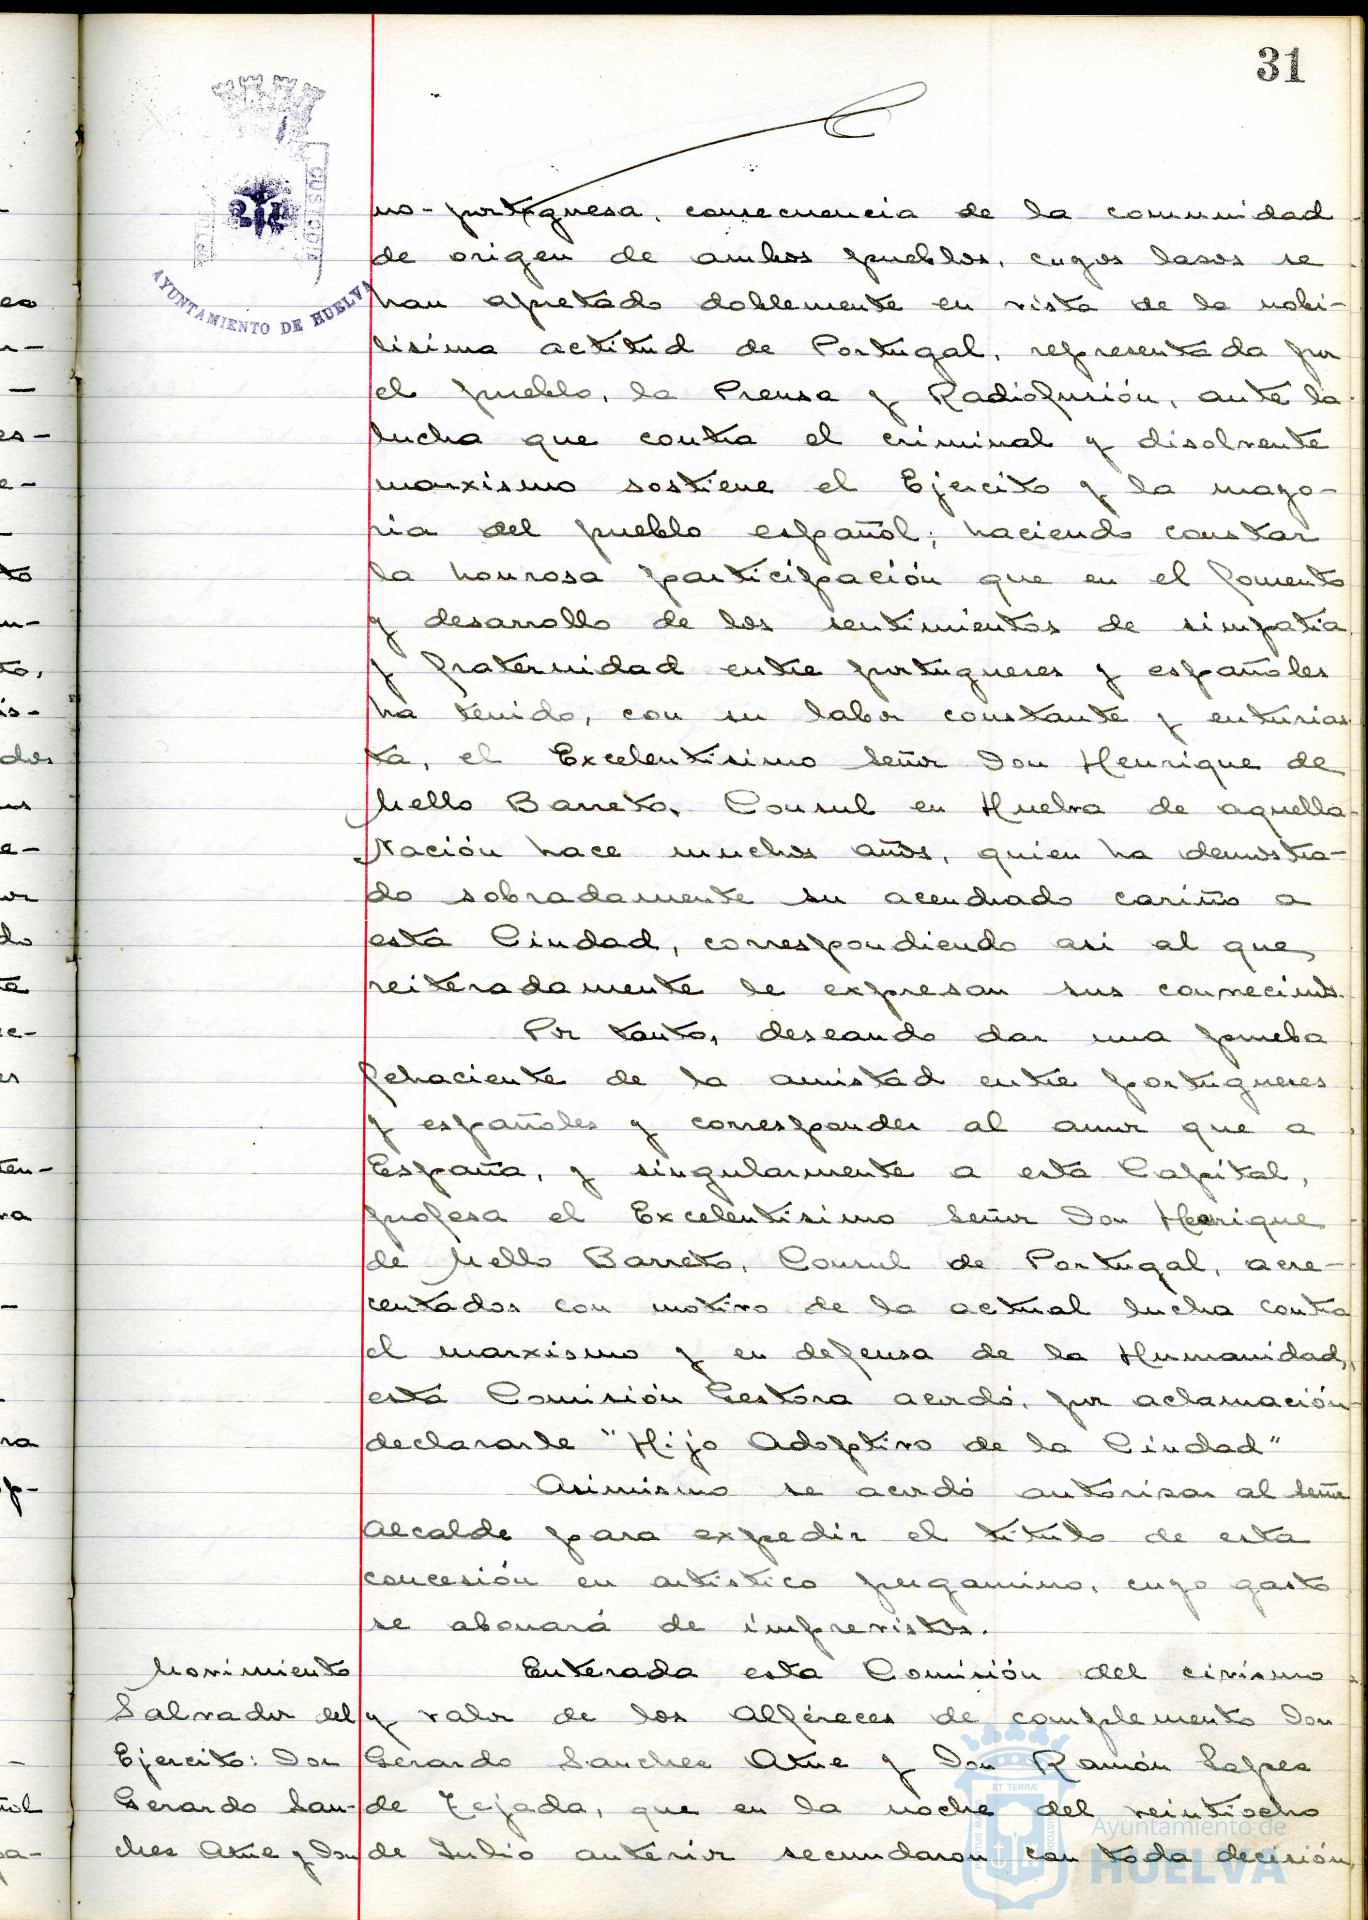 31
AYUNTAMIENTO DE HUELVA
no-portuguesa, consecuencia de la comunidad
de origen de ambos pueblos, cuyos lasos se
han apretado doblemente en vista de la nobi-
lisima actitud de Portugal, representada por
el pueblo, la Prensa y Radiofusión, ante la
lucha que contra el criminal y disolvente
marxismo sostiene el Ejercito y la mayo-
ria del pueblo español; haciendo constar
la honrosa participación que en el fomento
y desarrollo de los sentimientos de simpatia
y fraternidad entre portugueses y españoles
ha tenido, con su labor constante y entusias
ta, el Excelentisimo Señor Don Henrique de
Mello Barreto, Consul en Huelva de aquella
Nación hace muchos años, quien ha demostra-
do sobradamente su acendrado cariño a
esta Ciudad, correspondiendo asi al que
reiteradamente le expresan sus convecinos.
Por tanto, deseando dar una prueba
fehaciente de la amistad entre portugueses
y españoles y corresponder al amor que a
España, y singularmente a esta Capital,
profesa el Excelentisimo Señor Don Henrique
de Mello Barreto, Consul de Portugal, acre-
centados con motivo de la actual lucha contra
el marxismo y en defensa de la Humanidad,
esta Comisión Gestora acordó, por aclamación
declararle "Hijo Adoptivo de la Ciudad"
Asimismo se acordó autorisar al Señor
Alcalde para expedir el titulo de esta
concesión en artistico pergamino, cuyo gasto
se abonará de imprevistos.
Movimiento
Salvador del
Ejercito: Don
Gerardo San-
ches Atne y Don
Enterada esta Comisión del civismo
y valor de los Alféreces de complemento Don
Gerardo Sanches Atne y Don Ramón Lopes
de Tejada, que en la noche del veintiocho
de Julio anterior secundaron con toda decisión,
ET TERRÆ
Ayuntamiento de
HUELVA